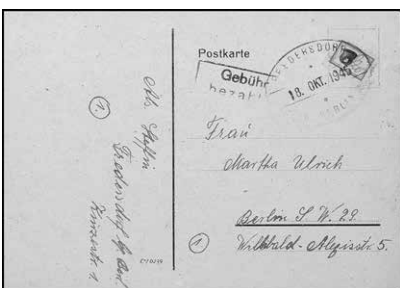 Postkarte
Gebühr
bezahlt
FREDERSDORF
18. OKT. 1945
BERLIN
Frau
Martha Ulrich
Berlin S.W. 29.
Willibald-Alexisstr. 5.
1
Abs.
Fredersdorf b/ Berl.
1